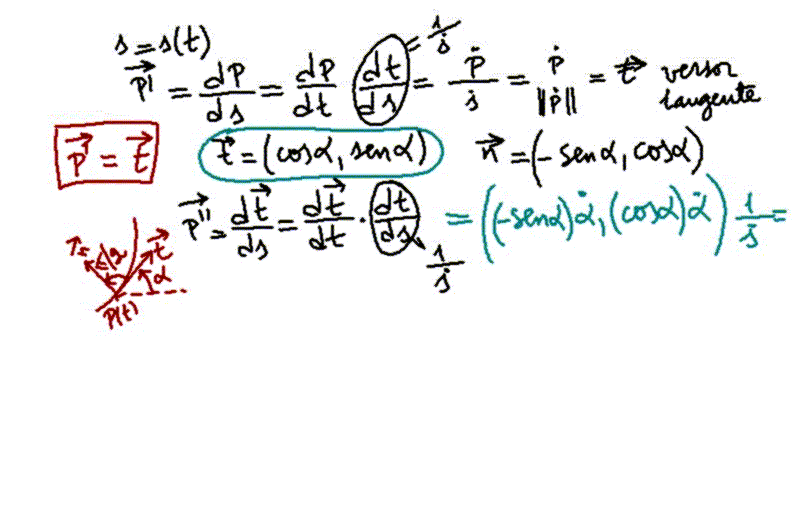 s = s(t)
p⃗' = dp/ds = dp/dt dt/ds = ṗ/ṡ = ṗ/||ṗ|| = t⃗ versor tangente
= 1/ṡ
p⃗' = t⃗
t⃗ = (cosα, senα)
n⃗ = (- senα, cosα)
p⃗'' = dt⃗/ds = dt⃗/dt · dt/ds = ((-senα)α̇, (cosα)α̇) 1/ṡ =
1/ṡ
t⃗
α
P(t)